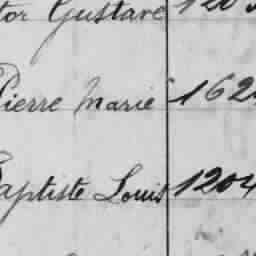 tor Gustave 120
Pierre Marie 162
Baptiste Louis 1204